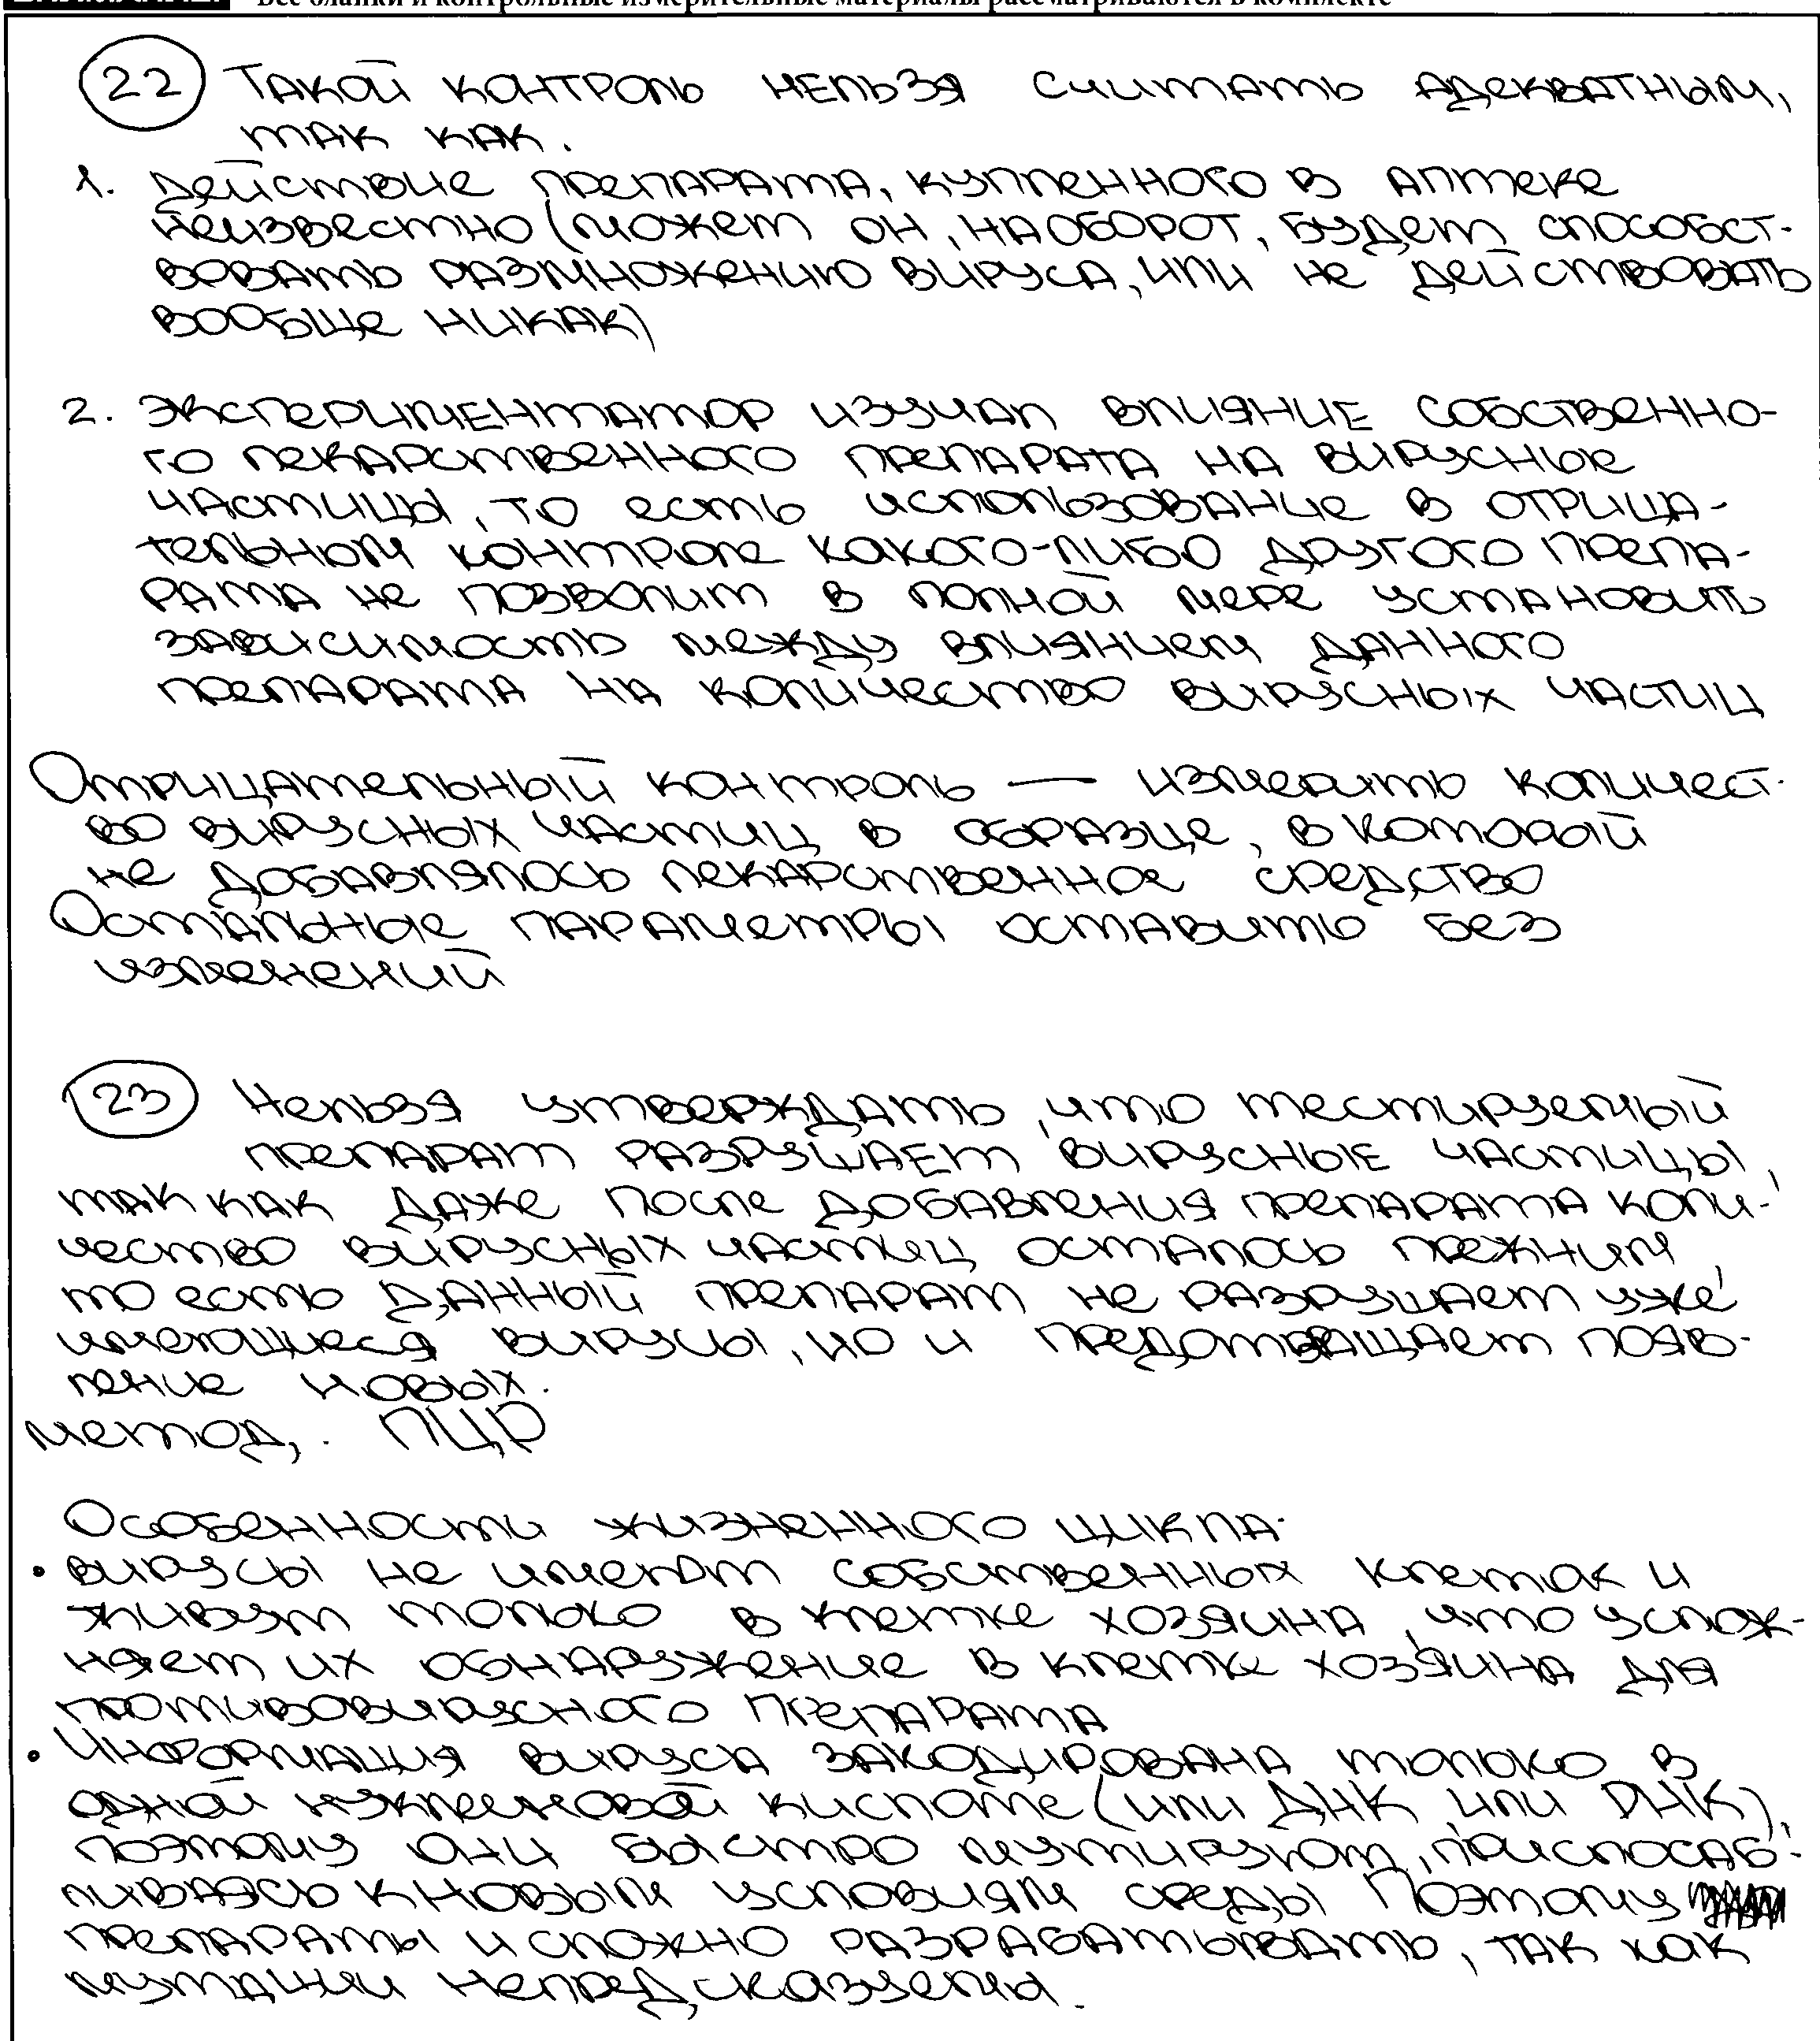 Все бланки и контрольные измерительные материалы рассматриваются в комплекте
22 Такой контроль нельзя считать адекватным,
так как.
1. Действие препарата, купленного в аптеке
неизвестно (может он, наоборот, будет способст-
вовать размножению вируса, или не действовать
вообще никак)
2. Экспериментатор изучал влияние собственно-
го лекарственного препарата на вирусные
частицы, то есть использование в отрица-
тельном контроле какого-либо другого препа-
рата не позволит в полной мере установить
зависимость между влиянием данного
препарата на количество вирусных частиц
Отрицательный контроль — измерить количест-
во вирусных частиц в образце, в который
не добавлялось лекарственное средство
Остальные параметры оставить без
изменений
23 Нельзя утверждать, что тестируемый
препарат разрушает вирусные частицы,
так как даже после добавления препарата коли-
чество вирусных частиц осталось прежним,
то есть данный препарат не разрушает уже
имеющиеся вирусы, но и предотвращает появ-
ление новых.
метод. ПЦР
Особенности жизненного цикла.
• вирусы не имеют собственных клеток и
живут только в клетке хозяина, что услож-
няет их обнаружение в клетке хозяина для
противовирусного препарата
• Информация вируса закодирована только в
одной нуклеиновой кислоте (или ДНК, или РНК),
поэтому они быстро мутируют, приспосаб-
ливаясь к новым условиям среды Поэтому
препараты и сложно разрабатывать, так как
мутации непредсказуемы.